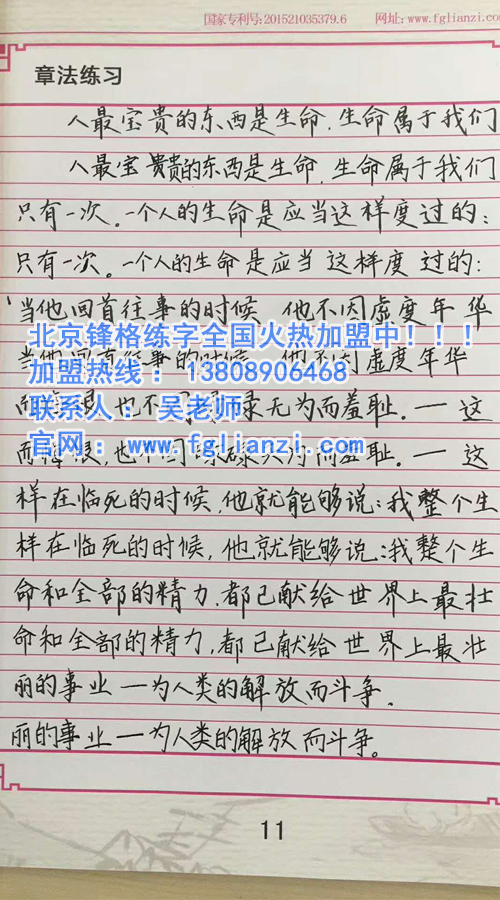 国家专利号:201521035379.6 网址:www.fglianzi.com
章法练习
人最宝贵的东西是生命.生命属于我们
人最宝贵的东西是生命.生命属于我们
只有一次。一个人的生命是应当这样度过的:
只有一次。一个人的生命是应当这样度过的:
当他回首往事的时候 他不因虚度年华
北京锋格练字全国火热加盟中!!!
当他 往事的时候 他不因虚度年华
加盟热线: 13808906468
而 恨也不 碌无为而羞耻.一这
联系人: 吴老师
而悔恨,也不因 碌 为而羞耻.一这
官网: www.fglianzi.com
样在临死的时候,他就能够说:我整个生
样在临死的时候,他就能够说:我整个生
命和全部的精力.都已献给世界上最壮
命和全部的精力,都已献给世界上最壮
丽的事业一为人类的解放而斗争.
丽的事业一为人类的解放而斗争。
11